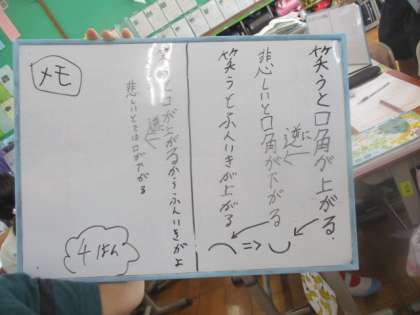 笑うと口角が上がる。
逆に
悲しいと口角が下がる
笑うとふんいきが上がる
⌒ => ⌣
口が上がるからふんいきがよ
逆
悲しいときは口が下がる
メモ
4はん